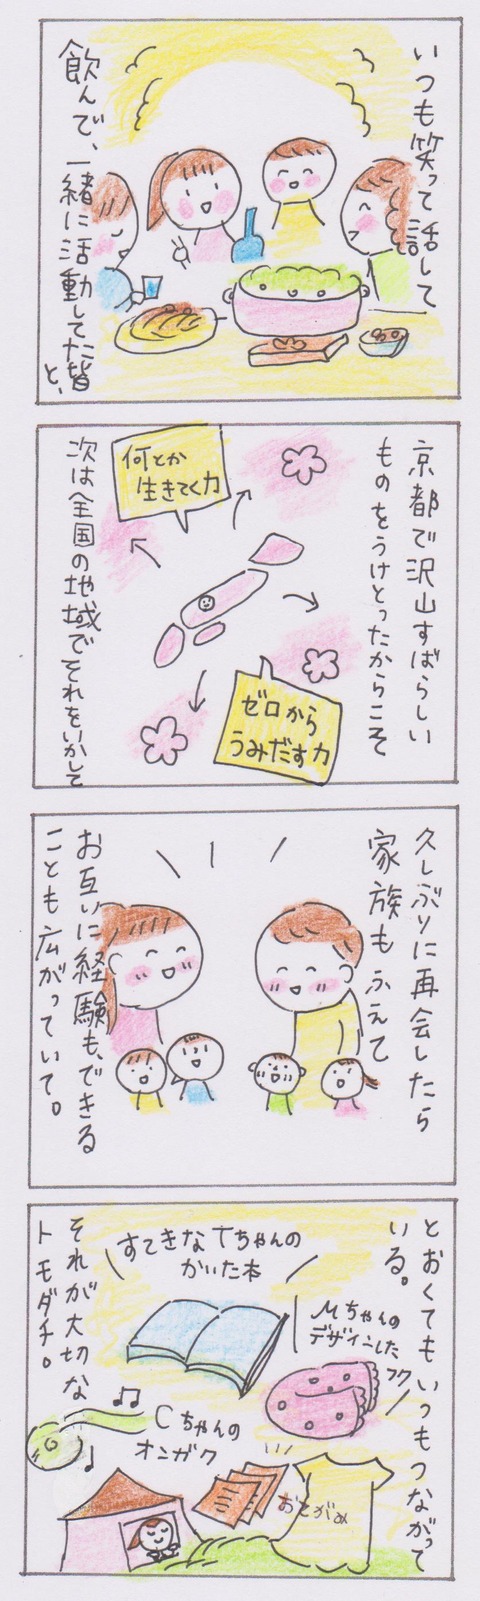 いつも笑って話して
飲んで、一緒に活動してた皆
と、
京都で沢山すばらしい
ものをうけとったからこそ
何とか
生きてく力
ゼロから
うみだす力
次は全国の地域でそれをいかして
久しぶりに再会したら
家族もふえて
お互いに経験も、できる
ことも広がっていて。
とおくてもいつもつながって
いる。
すてきなTちゃんの
かいた本
Mちゃんの
デザインした
フク
Cちゃんの
オンガク
おとがめ
それが大切な
トモダチ。